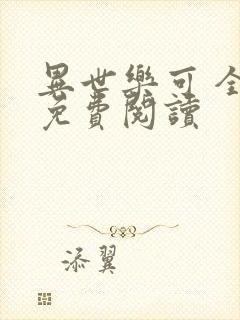 異世樂可全
免費閱讀
添翼